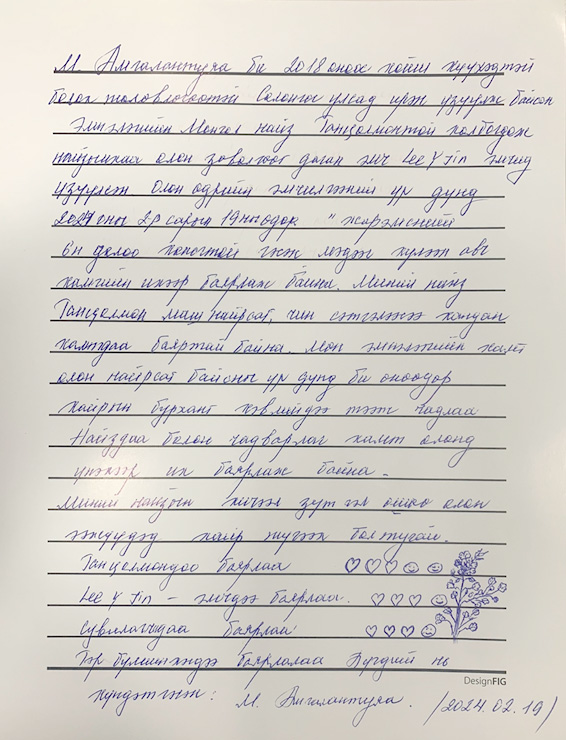 М. Амгалантуяа би 2018 оноос хойш хүүхэдтэй
болох төлөвлөгөөтэй Солонгос улсад ирж үзүүлж байсан
Эмнэлэгийн Монгол найз Ганцэлмэнтэй холбогдож
найзынхаа олон зөвлөгөөг даган эмч Lee Y Jin эмчид
үзүүлэж олон өдрийн эмчилгээний үр дүнд
2024 оны 2р сарын 19ны өдөр " жирэмсний
6н долоо хоногтой гэж мэдээ хүлээж авч
хамгийн ихээр баярлаж байна. Миний найз
Ганцэлмэн маш найрсаг, чин сэтгэлээсээ хандан
хамтдаа баяртай байна. Мөн эмнэлэгийн хамт
олон найрсаг байсны үр дүнд би өнөөдөр
хайрын бурхант хэвлийдээ тээж чадлаа
Найздаа болон чадварлаг хамт олонд
үнэхээр их баярлаж байна.
Миний найзын хичээл зүтгэл олон
ээжүүдэд хайр түгээх болтугай.
Ганцэлмэндээ баярлаа
Lee Y Jin – эмчдээ баярлаа.
сувилагчдаа баярлаа
Гэр бүлийнхэндээ баярлалаа Бүгдийг нь
DesignFIG
хүндэтгэсэн: М. Амгалантуяа. /2024.02.19/